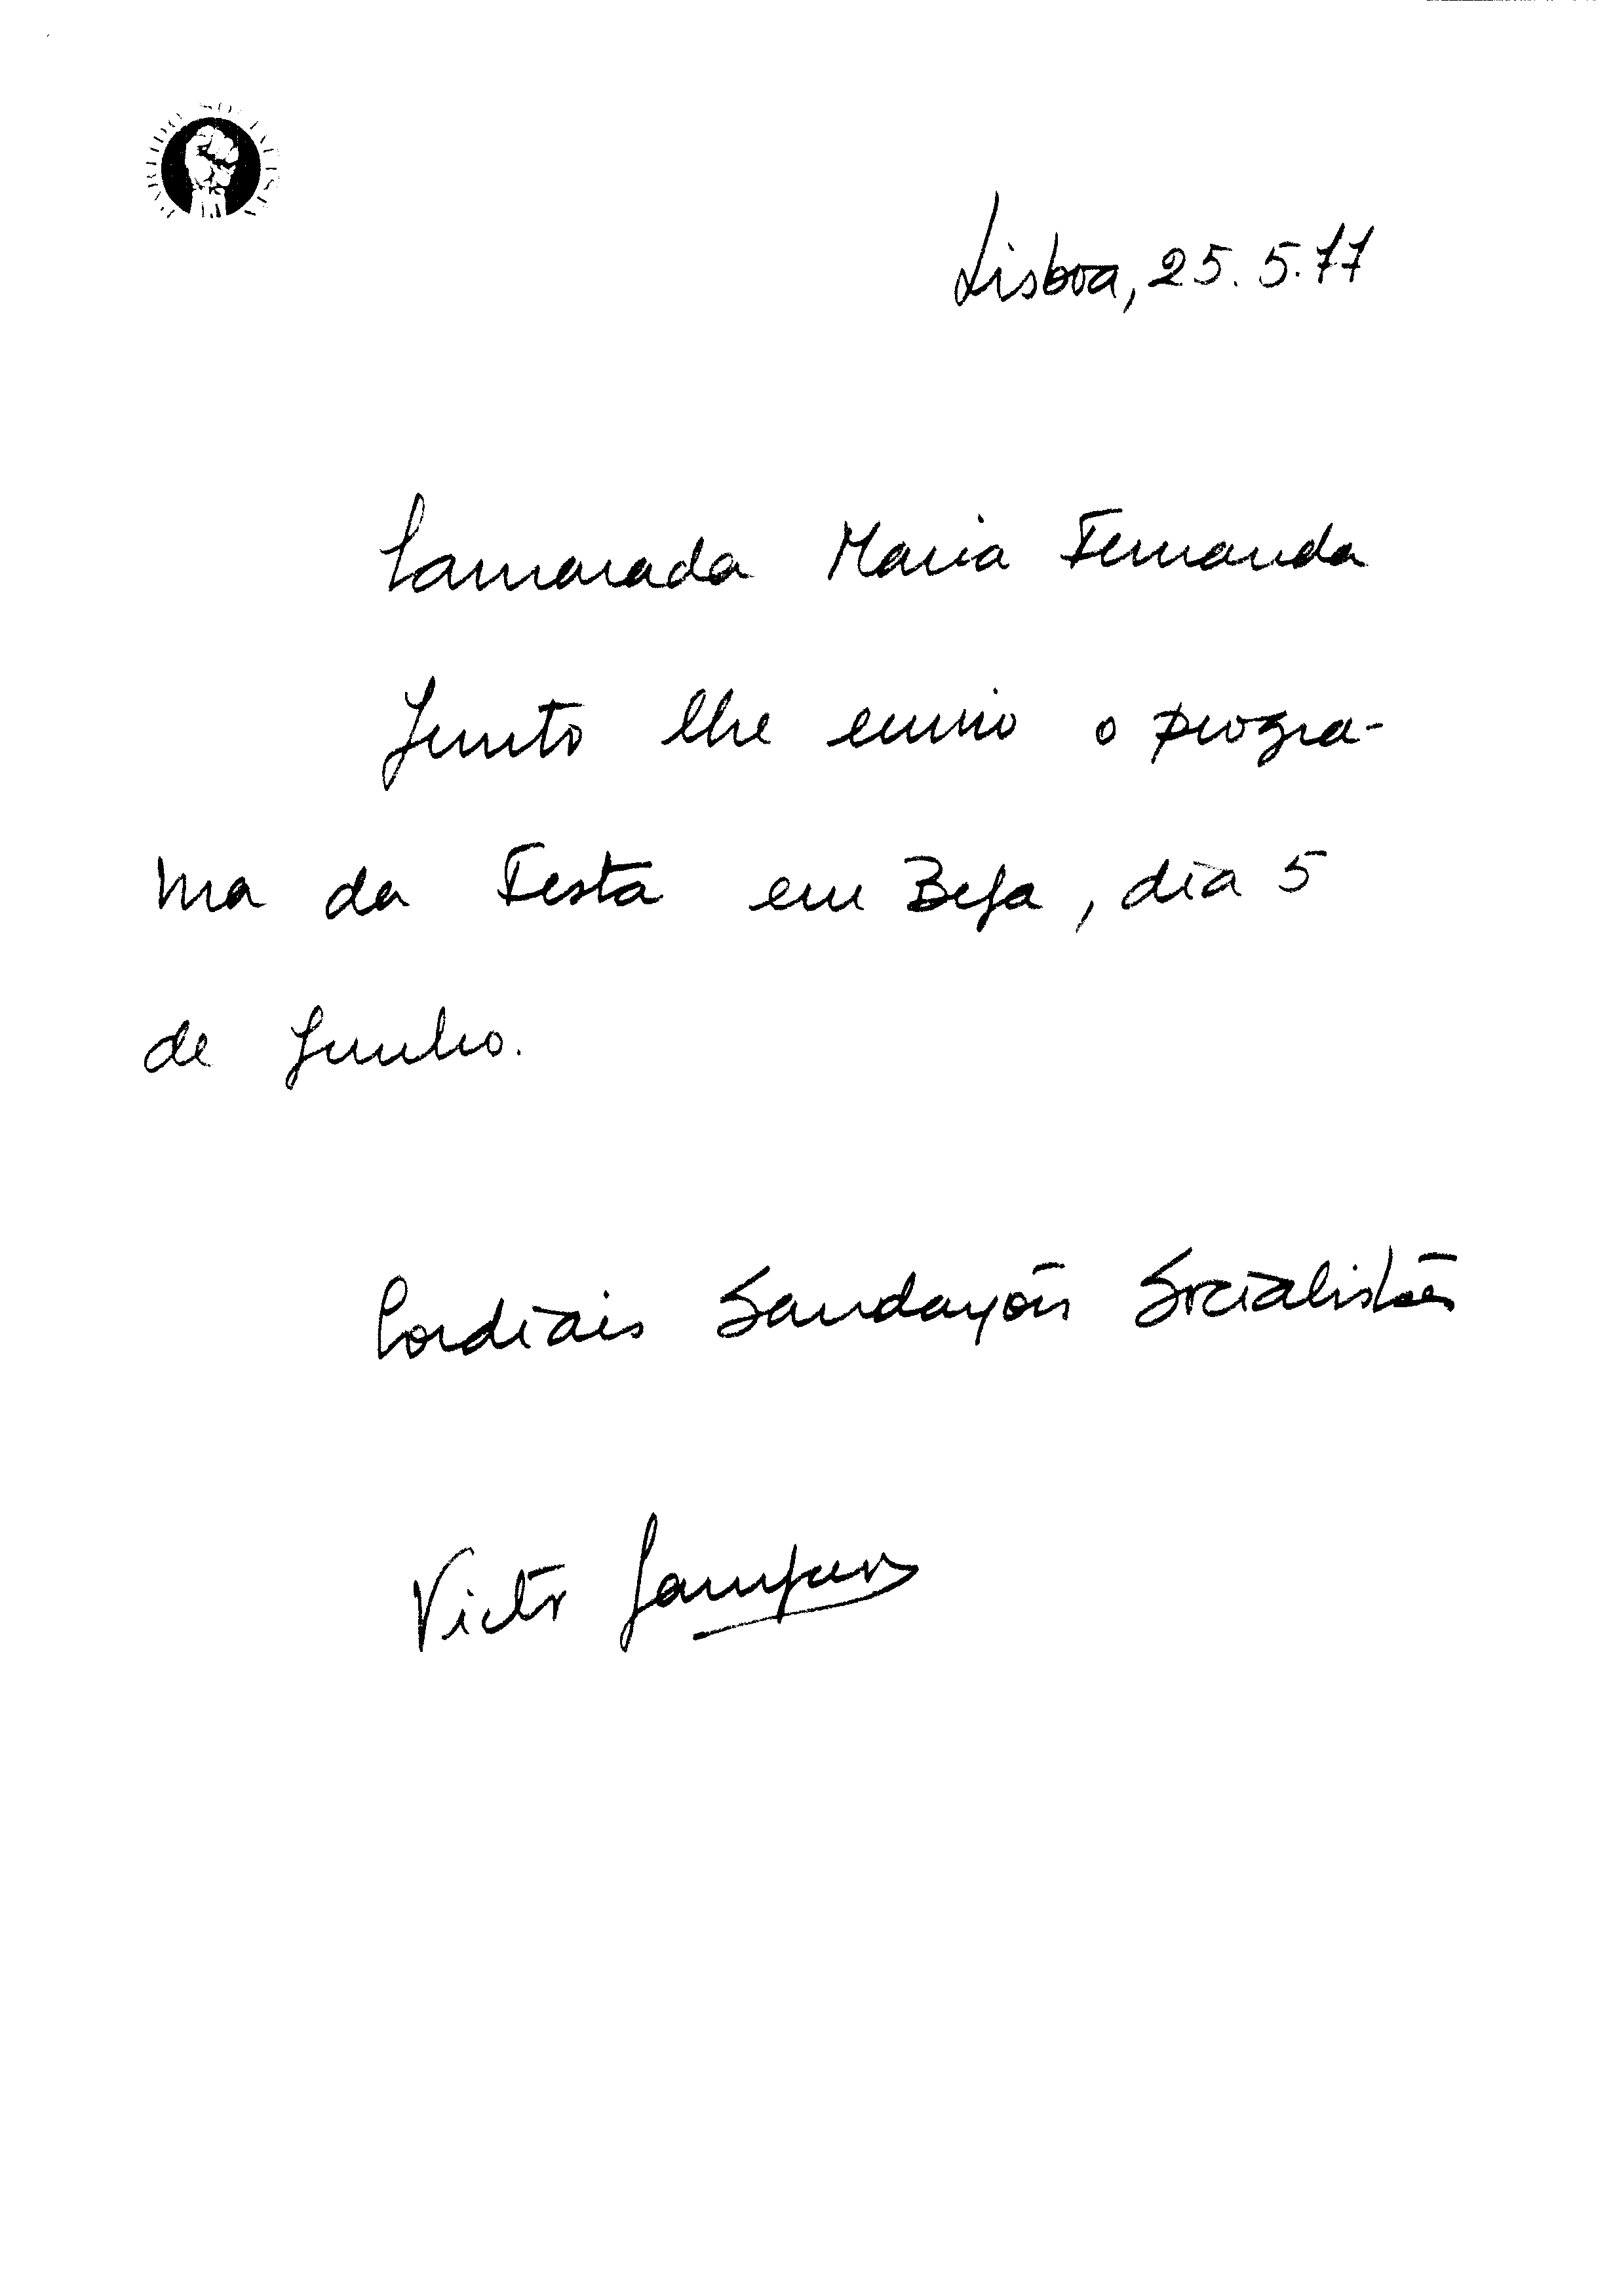 Lisboa, 25.5.77
Camarada Maria Fernanda
Junto lhe envio o progra-
ma da Festa em Beja, dia 5
de Junho.
Cordiais Saudações Socialistas
Victor